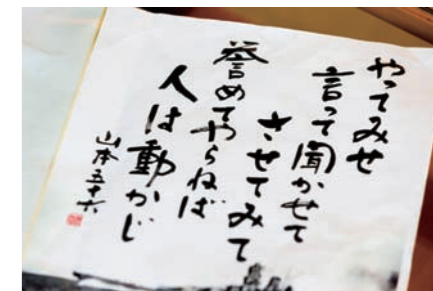 やってみせ
言って聞かせて
させてみて
誉めてやらねば
人は動かじ
山本五十六